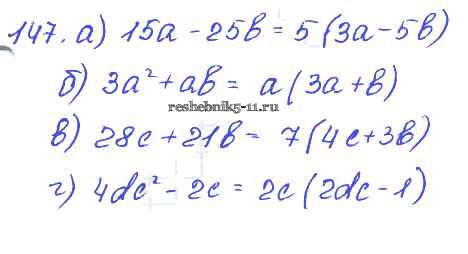 147. а) 15a - 25b = 5 (3a - 5b)
б) 3a² + ab = a (3a + b)
reshebnik5-11.ru
в) 28c + 21b = 7 (4c + 3b)
г) 4dc² - 2c = 2c (2dc - 1)